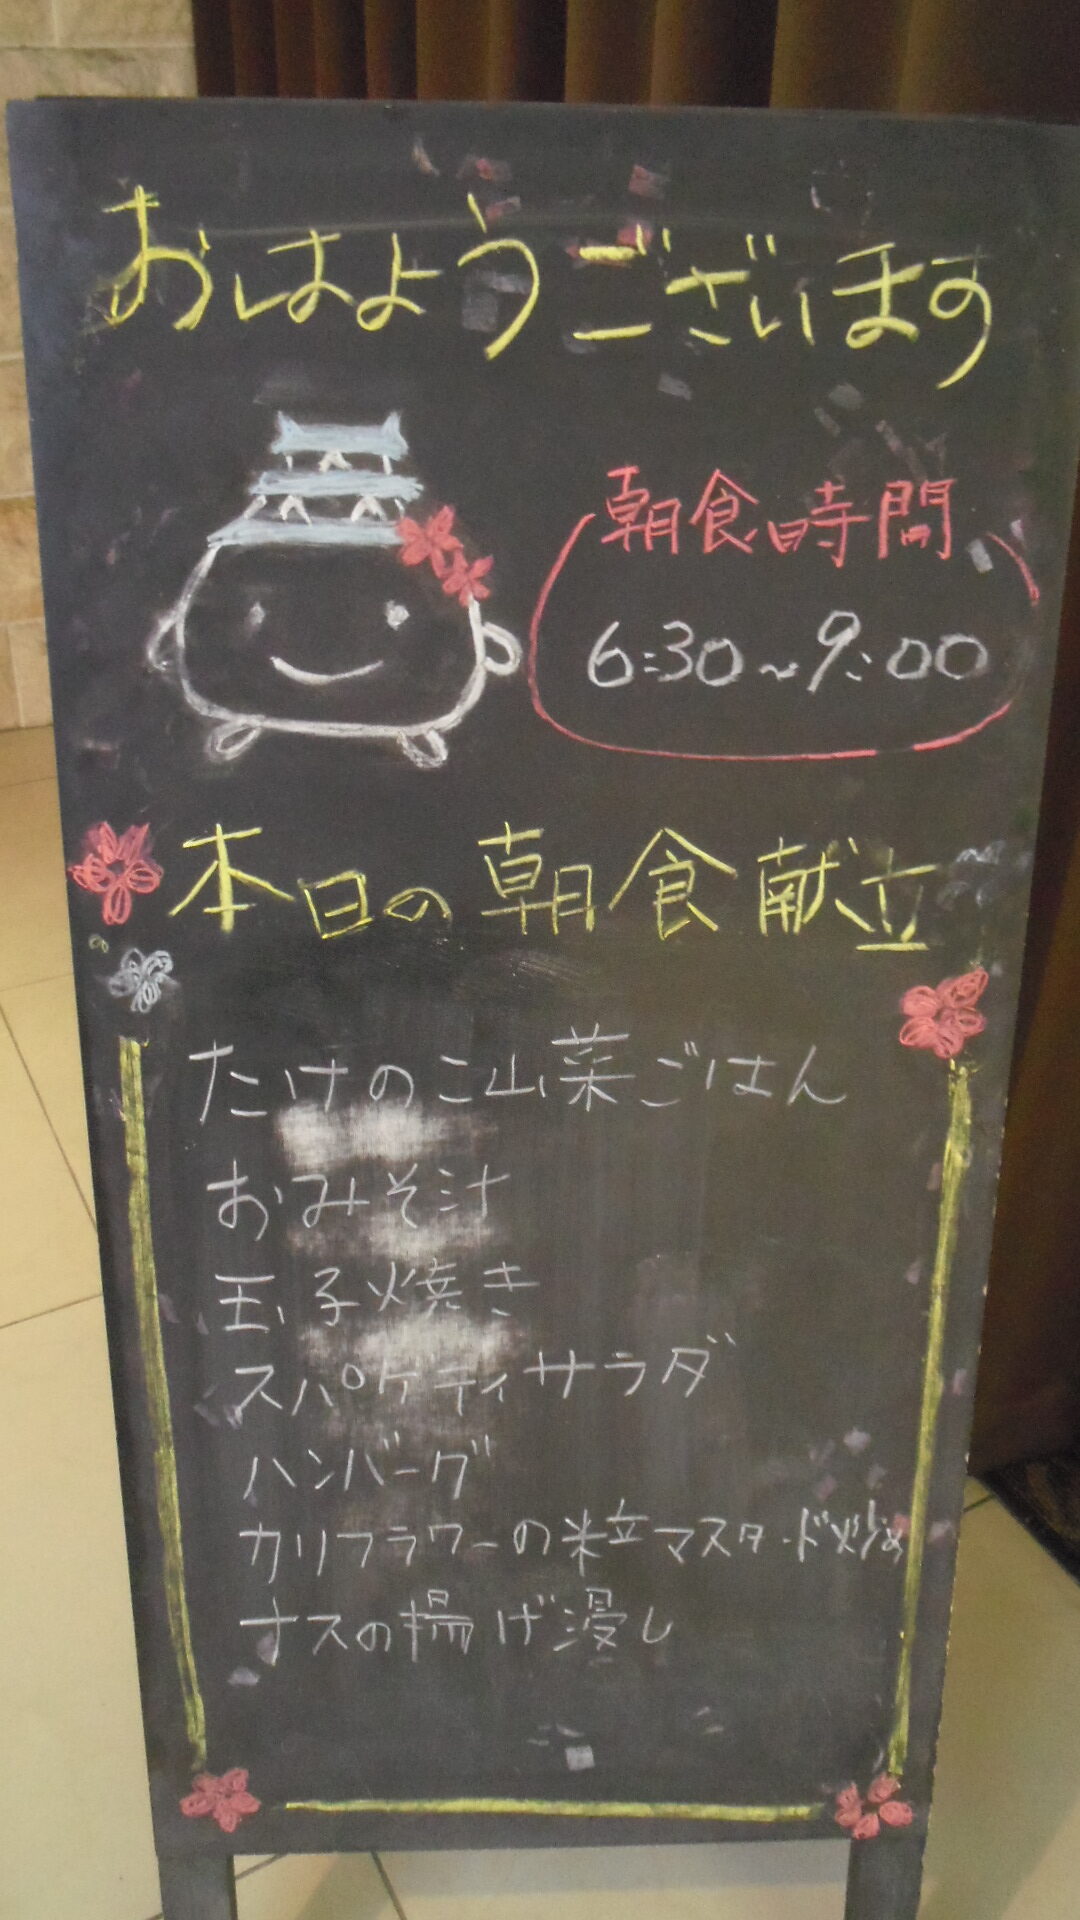 おはようございます
朝食時間
6:30~9:00
本日の朝食献立
たけのこ山菜ごはん
おみそ汁
玉子焼き
スパゲティサラダ
ハンバーグ
カリフラワーの粒マスタード炒め
ナスの揚げ浸し